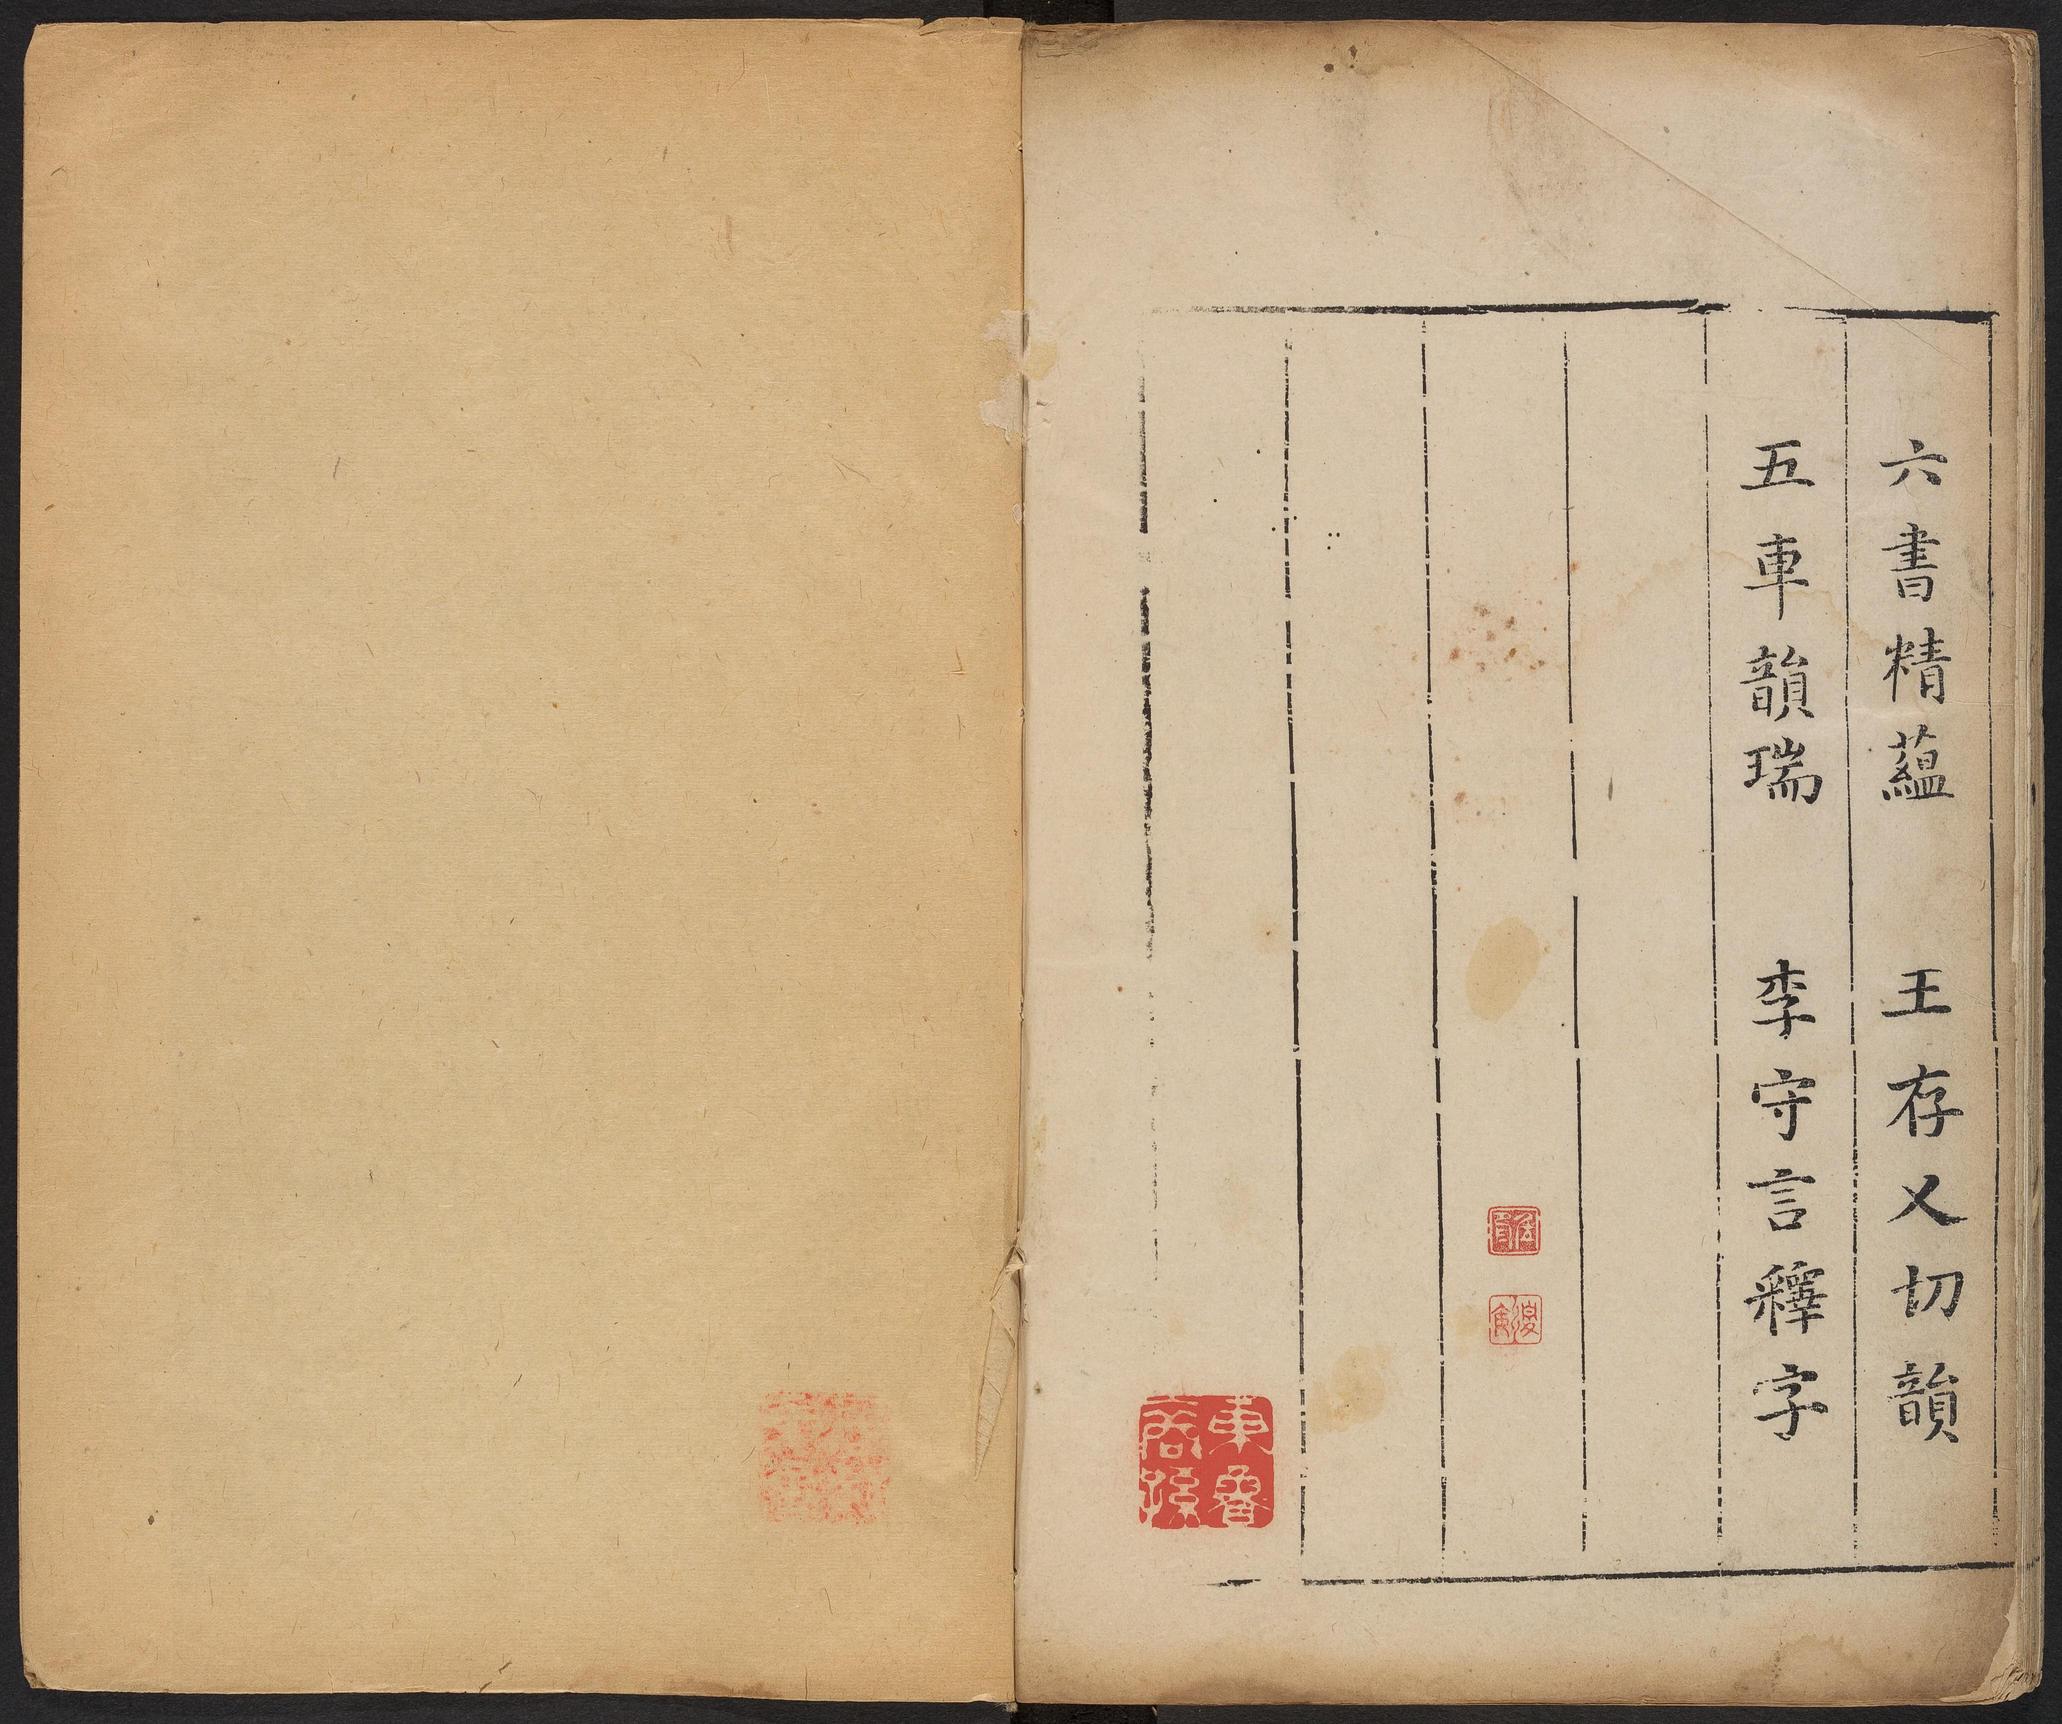 六書精蘊　王存乂切韻
五車韻瑞　李守言釋字
東魯